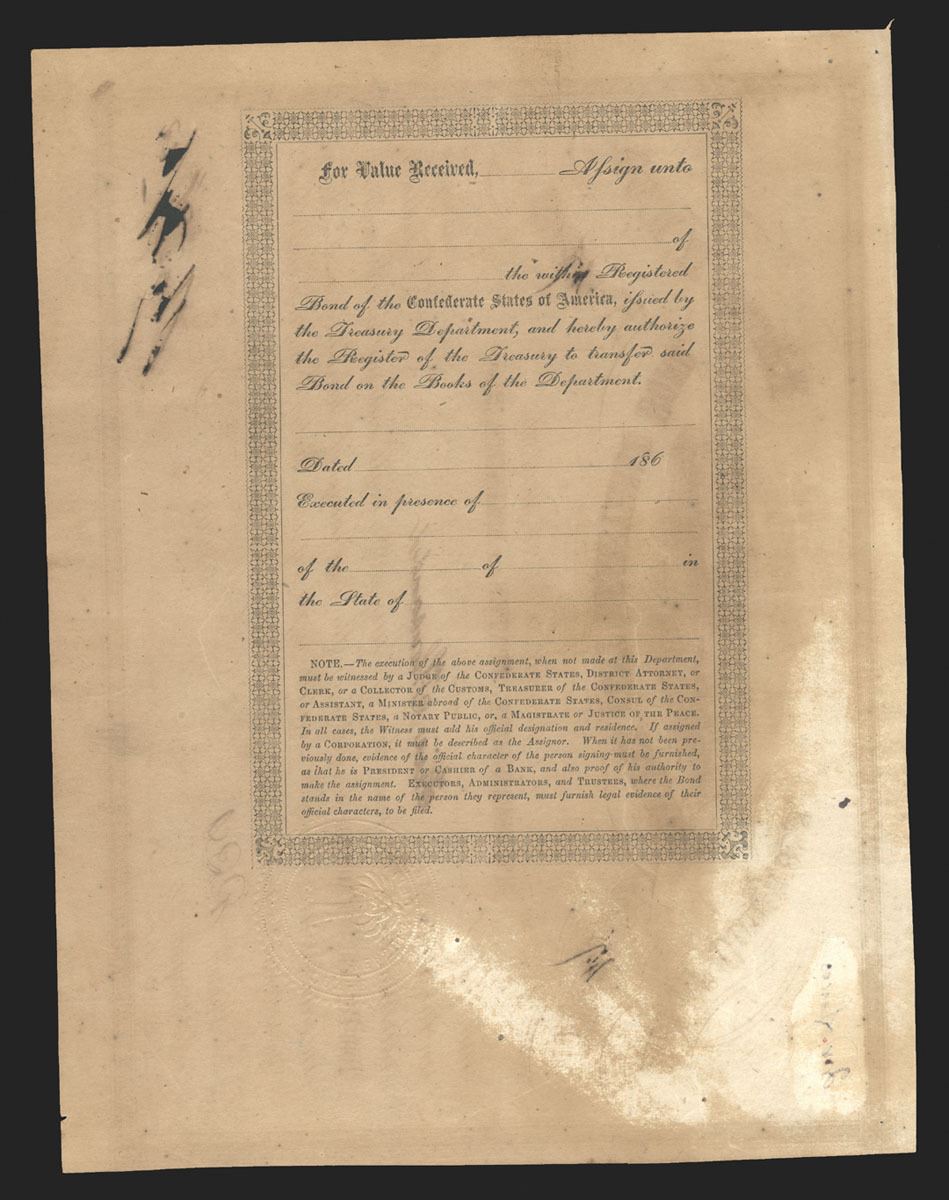 For Value Received, Assign unto
of
the within Registered
Bond of the Confederate States of America, issued by
the Treasury Department, and hereby authorize
the Register of the Treasury to transfer said
Bond on the Books of the Department.
Dated 186
Executed in presence of
of the of in
the State of
NOTE.—The execution of the above assignment, when not made at this Department,
must be witnessed by a JUDGE of the CONFEDERATE STATES, DISTRICT ATTORNEY, or
CLERK, or a COLLECTOR of the CUSTOMS, TREASURER of the CONFEDERATE STATES,
or ASSISTANT, a MINISTER abroad of the CONFEDERATE STATES, CONSUL of the CON-
FEDERATE STATES, a NOTARY PUBLIC, or, a MAGISTRATE or JUSTICE OF THE PEACE.
In all cases, the Witness must add his official designation and residence. If assigned
by a CORPORATION, it must be described as the Assignor. When it has not been pre-
viously done, evidence of the official character of the person signing must be furnished,
as that he is PRESIDENT or CASHIER of a BANK, and also proof of his authority to
make the assignment. EXECUTORS, ADMINISTRATORS, and TRUSTEES, where the Bond
stands in the name of the person they represent, must furnish legal evidence of their
official characters, to be filed.